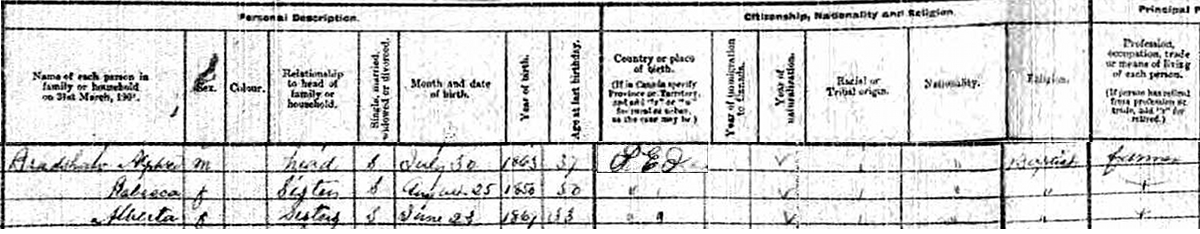 Personal Description. Citizenship, Nationality and Religion. Principal P
Name of each person in family or household on 31st March, 1901.
Sex.
Colour.
Relationship to head of family or household.
Single, married, widowed or divorced.
Month and date of birth.
Year of birth.
Age at last birthday.
Country or place of birth. (If in Canada specify Province or Territory, and add "r" or "u" for rural or urban as the case may be.)
Year of immigration to Canada.
Year of naturalization.
Racial or Tribal origin.
Nationality.
Religion.
Profession, occupation, trade or means of living of each person. (If person has retired from profession or trade, add "r" for retired.)
Bradshaw m head S July 30 1863 37 P E I Baptist farmer
f Sister S August 25 1850 50 " "
Alberta f Sister S June 23 33 " "